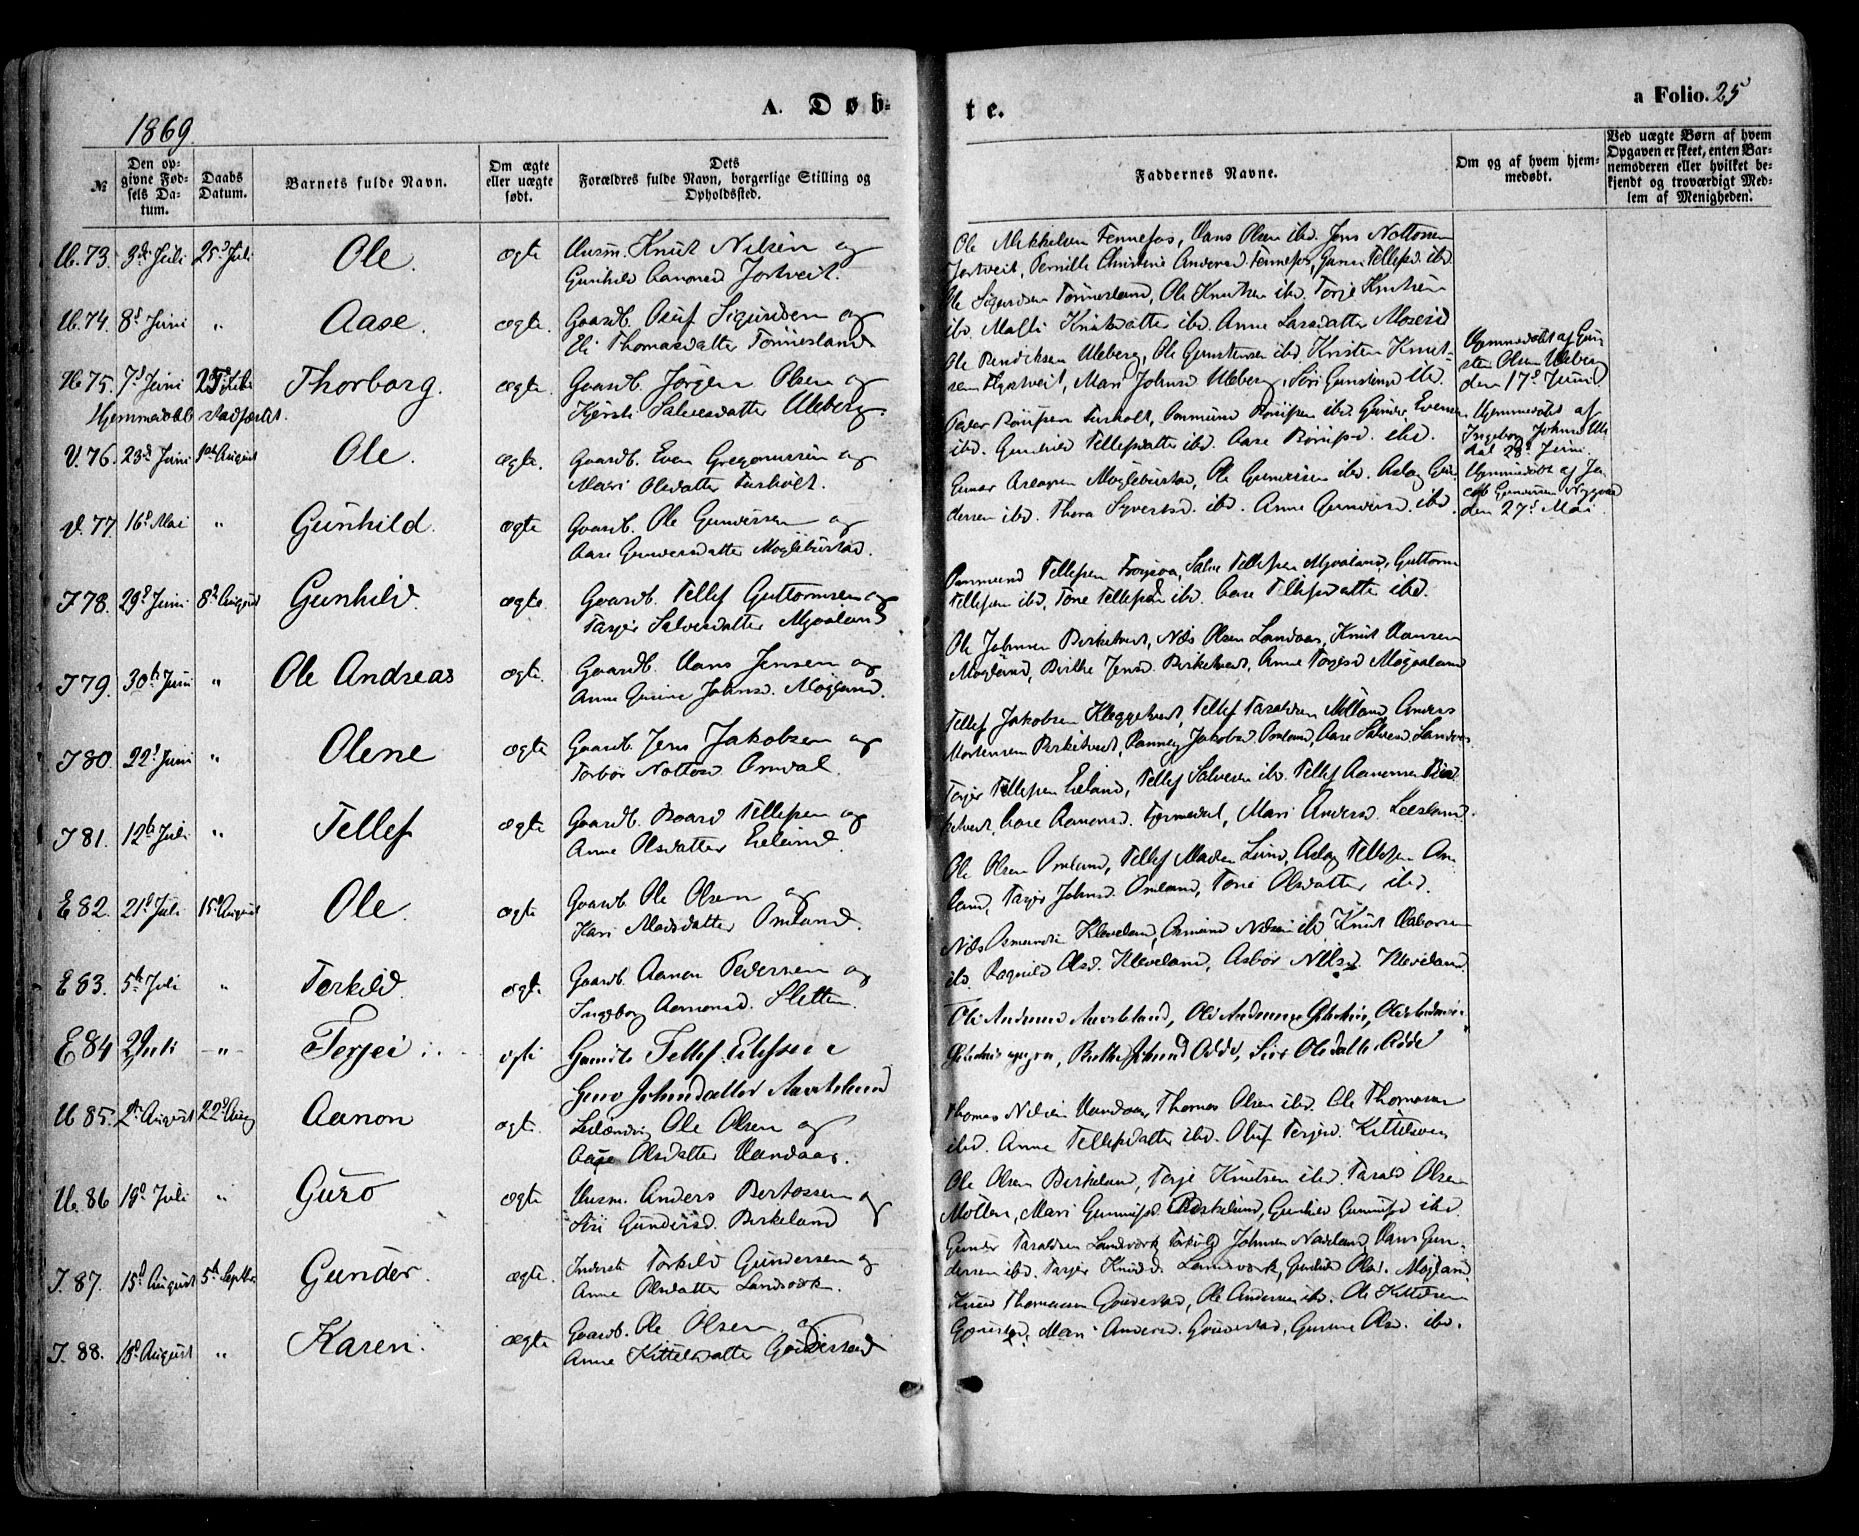 A. Døb-
te.
a Folio. 25
1869.
№
Den opgivne Fødsels Datum.
Daabs Datum.
Barnets fulde Navn.
Om ægte eller uægte født.
Dets Forældres fulde Navn, borgerlige Stilling og Opholdssted.
Faddernes Navne.
Om og af hvem hjemmedøbt.
Ved uægte Børn af hvem Opgaven er skeet, enten Barnemøderen eller hvilket bekjendt og troværdigt Medlem af Menigheden.
U. 73. 3de Juli 25d Juli Ole. ægte Husm. Knut Nilsen og
Gunhild Aanonsd Jortveit.
Ole Mikkelsen Fennefos, Hans Olsen ibd. Jens Nottosen
Jortveit, Pernille Christine Andersd. Fennefos, Gunn Tellefsd. ibd.
U. 74. 8d Juni " Aase. ægte. Gaardb. Oluf Sigurdsen og
Eli Thomasdatter Tönnesland
Ole Sigurdsen Tönnesland, Ole Knutsen ibd. Torje Knutsen
ibd. Malli Knutsdatter ibd. Anne Larsdatter Moseid
U. 75. 7d Juni 25d Juli Thorborg. ægte. Gaardb. Jörgen Olsen og
Kjersti Salvesdatter Uleberg.
Hjemmedåb stadfæstet.
Ole Bendiksen Uleberg, Ole Gunstensen ibd. Kristen Knut-
sen Hortveit, Mari Johnsd Uleberg, Siri Gunstensd ibd.
Hjemmedøbt af Gun-
sten Olsen Uleberg
den 17d Juni
V. 76. 23d Juni 1ste August Ole. ægte. Gaardb. Even Gregoriussen og
Mari Olsdatter Furholt.
ibd. Gunhild Tellefsdatter ibd. Aase Rönifsd. ibd.
Hjemmedøbt af
Ingeborg Johnsd
28d Juni
V. 77 16d Mai " Gunhild. ægte Gaardb. Ole Gundersen og
Aase Gundersdatter Möglebustad.
Gunder Aslagsen Möglebustad, Ole Gundersen ibd. Aslag Gun-
dersen ibd. Thora Syvertsd. ibd. Anne Gundersd. ibd.
Hjemmedøbt af Ja-
cob Gundersen Nygaard
den 27d Mai
I 78. 29d Juni 8de August Gunhild. ægte. Gaardb. Tellef Guttormsen og
Tarjer Salvesdatter Myvaland
Ommund Tellefsen Frøysaa, Salve Tellefsen Myvaland, Guttorm
Tellefsen ibd, Tone Tellefsd ibd. Aase Tellefsdatter ibd.
I 79. 30te Juni " Ole Andreas ægte. Gaardb. Hans Jensen og
Anne Gurine Johnsd. Mögland.
Ole Johnsen Birketveit, Nils Olsen Landaas, Knut Hansen
Mögland, Birthe Jensd. Birketveit, Anne Torjesd Myvaland
I 80. 22d Juni " Olene ægte Gaardb. Jens Jakobsen og
Torbör Nottosd Omdal.
Tellef Jakobsen Kleggetveit, Tellef Taraldsen Mölland Anders
Mortensen Birketveit, Ranneg Jakobsd Omland, Aase Salvesd Landaas
I 81. 12te Juli " Tellef ægte Gaardb. Baard Tellefsen og
Anne Olsdatter Eieland.
Torjer Tellefsen Eieland, Tellef Salvesen ibd. Tellef Aanonsen Bir-
ketveit, Aase Aanonsd. Fjermedal, Mari Andersd. Eieland.
E 82. 21d Juli 15d August Ole. ægte Gaardb. Ole Olsen og
Kari Madsdatter Omland.
Ole Olsen Omland, Tellef Madsen Lund, Aslag Tellefsen Om-
land, Tarjer Johnsd. Omland, Tone Olsdatter ibd.
E 83. 5te Juli " Torkild. ægte. Gaardb. Aanon Pedersen og
Ingeborg Aanonsd. Sletten.
Nils Osmundsen Kleveland, Osmund Nilsen ibd Knut
ibd. Ragnild Olsd. Kleveland, Asbör Nilsd. Kleveland.
E 84 2 Juli " Terjei ægte Gaardb. Tellef Eilefsen
Guro Johnsdatter Aavitsland
Ole Andersen Aavitsland, Ole
Birthe Johnsd Odde, Siri Olsdatter Odde
U 85. 2den August 22d Aug Aanon ægt. Leilænding Ole Olsen og
Aase Olsdatter Haandaas.
Thomas Nilsen Haandaas, Thomas Olsen ibd. Ole Thomasen
ibd. Anne Tellefsdatter ibd. Oluf Terjesd. Kittelsen
U. 86 19d Juli " Guro ægte Husm. Anders Bertossen og
Siri Gundersd. Birkeland
Ole Olsen Birkeland, Torje Knutsen ibd. Tarald Olsen
Möllen, Mari Gunnufsd. Birkeland, Gunhild Gunnufsd ibd.
I. 87. 15d August 5te Septbr Gunder. ægte. Inderst Torkild Gundersen og
Anne Olsdatter Landverk.
Gunder Taraldsen Landverk, Torkild Johnsen Naveland, Hans Gun-
dersen ibd. Tarjer Knudsd. Landverk, Gunhild Olsd. Mögland.
I. 88. 18d August " Karen. ægte Gaardb. Ole Olsen og
Anne Kittelsdatter Goudestad
Knud Thomassen Goudestad, Ole Andersen ibd. Ole Kittelsen
Mari Andersd. Goudestad, Gurine Olsd. ibd.